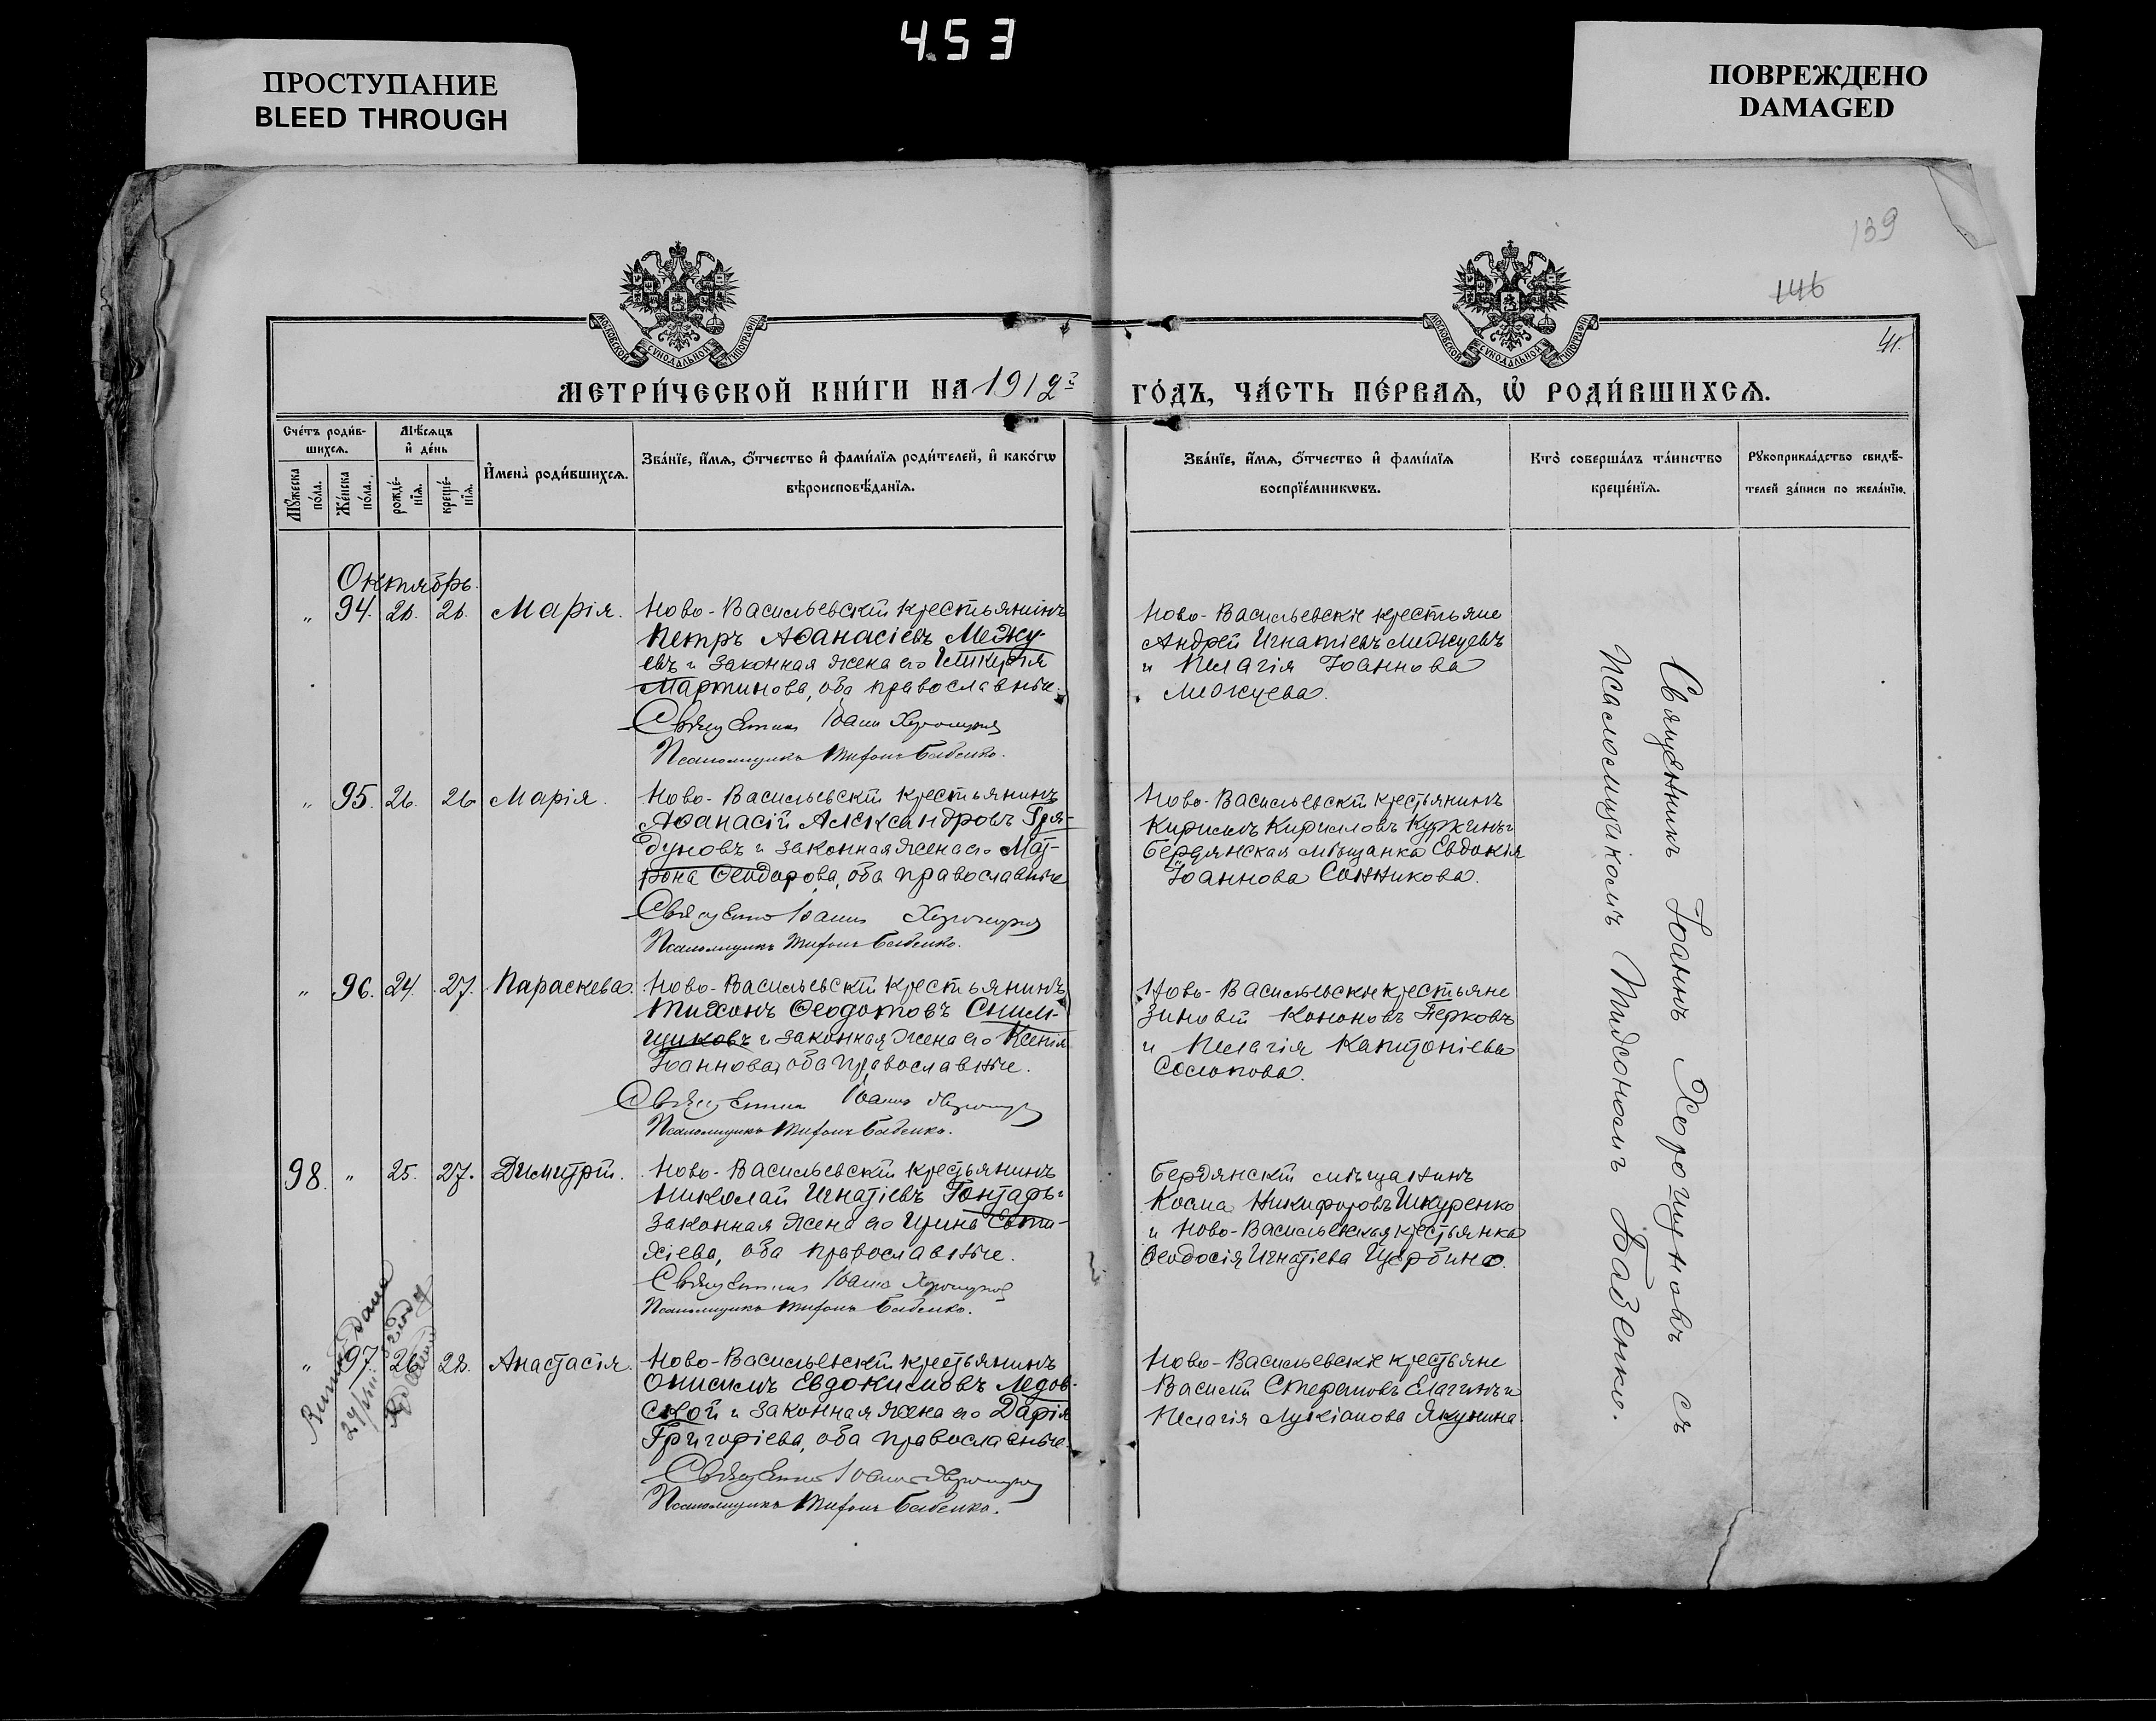 453
ПРОСТУПАНИЕ
BLEED THROUGH
ПОВРЕЖДЕНО
DAMAGED
139
146
41.
МОСКОВСКОЙ СѴНОДАЛЬНОЙ ТИПОГРАФІИ
МОСКОВСКОЙ СѴНОДАЛЬНОЙ ТИПОГРАФІИ
МЕТРИ́ЧЕСКОЙ КНИ́ГИ НА 1912й ГО́ДЪ, ЧА́СТЬ ПЕ́РВАЯ, Ѡ҆ РОДИ́ВШИХСЯ.
Сче́тъ роди́в-
шихся.
Мѣ́сяцъ
и҆ де́нь
Му́жеска по́ла.
Же́нска по́ла.
рожде́-
нїя.
креще́-
нїя.
И҆мена̀ роди́вшихся.
Зва́нїе, и҆́мя, ѻ҆́тчество и҆ фами́лїя роди́телей, и҆ како́гѡ
вѣроисповѣ́данїя.
Зва́нїе, и҆́мя, ѻ҆́тчество и҆ фами́лїя
воспрїе́мникѡвъ.
Кто̀ соверша́лъ та́инство
креще́нїя.
Рꙋкоприкла́дство свидѣ́-
телей за́писи по жела́нїю.
Октябрь.
„ 94. 26. 26. Марія.
Ново-Васильевскій крестьянинъ
Петръ Аѳанасіевъ Межу-
евъ и законная жена его Гликерія
Мартинова, оба православные.
Священникъ Іоаннъ Хорошуновъ
Псаломщикъ Тихонъ Бабенко.
Ново-Васильевскіе крестьяне
Андрей Игнатіевъ Межуевъ
и Пелагія Іоаннова
Межуева.
„ 95. 26. 26 Марія.
Ново-Васильевскій крестьянинъ
Аѳанасій Александровъ Гря-
дуновъ и законная жена его Мат-
рона Ѳеодорова, оба православные
Священникъ Іоаннъ Хорошуновъ
Псаломщикъ Тихонъ Бабенко.
Ново-Васильевскій крестьянинъ
Кириллъ Кирилловъ Куржинъ и
Бердянская мѣщанка Евдокія
Іоаннова Сотникова.
„ 96. 24. 27. Параскева.
Ново-Васильевскій крестьянинъ
Тихонъ Ѳеодотовъ
и законная жена его Ксенія
Іоаннова, оба православные.
Священникъ Іоаннъ Хорошуновъ
Псаломщикъ Тихонъ Бабенко.
Ново-Васильевскіе крестьяне
Зиновій Кононовъ Перковъ
и Пелагія Капитоніева
98. „ 25. 27. Димитрій.
Ново-Васильевскій крестьянинъ
Николай Игнатіевъ Гонтарь и
законная жена его Ирина Евти-
хіева, оба православные.
Священникъ Іоаннъ Хорошуновъ
Псаломщикъ Тихонъ Бабенко.
Бердянскій мѣщанинъ
Косма Никифоровъ Шкуренко
и Ново-Васильевская крестьянка
Ѳеодосія Игнатіева Щербина.
„ 97. 26. 28. Анастасія.
Ново-Васильевскій крестьянинъ
Онисимъ Евдокимовъ Ледов-
ской и законная жена его Дарія
Григоріева, оба православные.
Священникъ Іоаннъ Хорошуновъ
Псаломщикъ Тихонъ Бабенко.
Ново-Васильевскіе крестьяне
Василій Стефановъ Елагинъ и
Пелагія Лукіанова Якунина.
Священникъ Іоаннъ Хорошуновъ съ
Псаломщикомъ Тихономъ Бабенко.